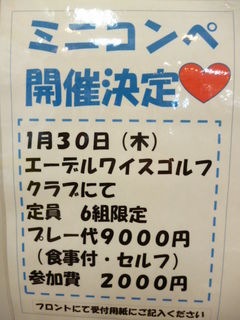 ミニコンペ
開催決定❤
1月30日（木）
エーデルワイスゴルフ
クラブにて
定員　6組限定
プレー代9000円
（食事付・セルフ）
参加費　2000円
フロントにて受付用紙にご記入ください